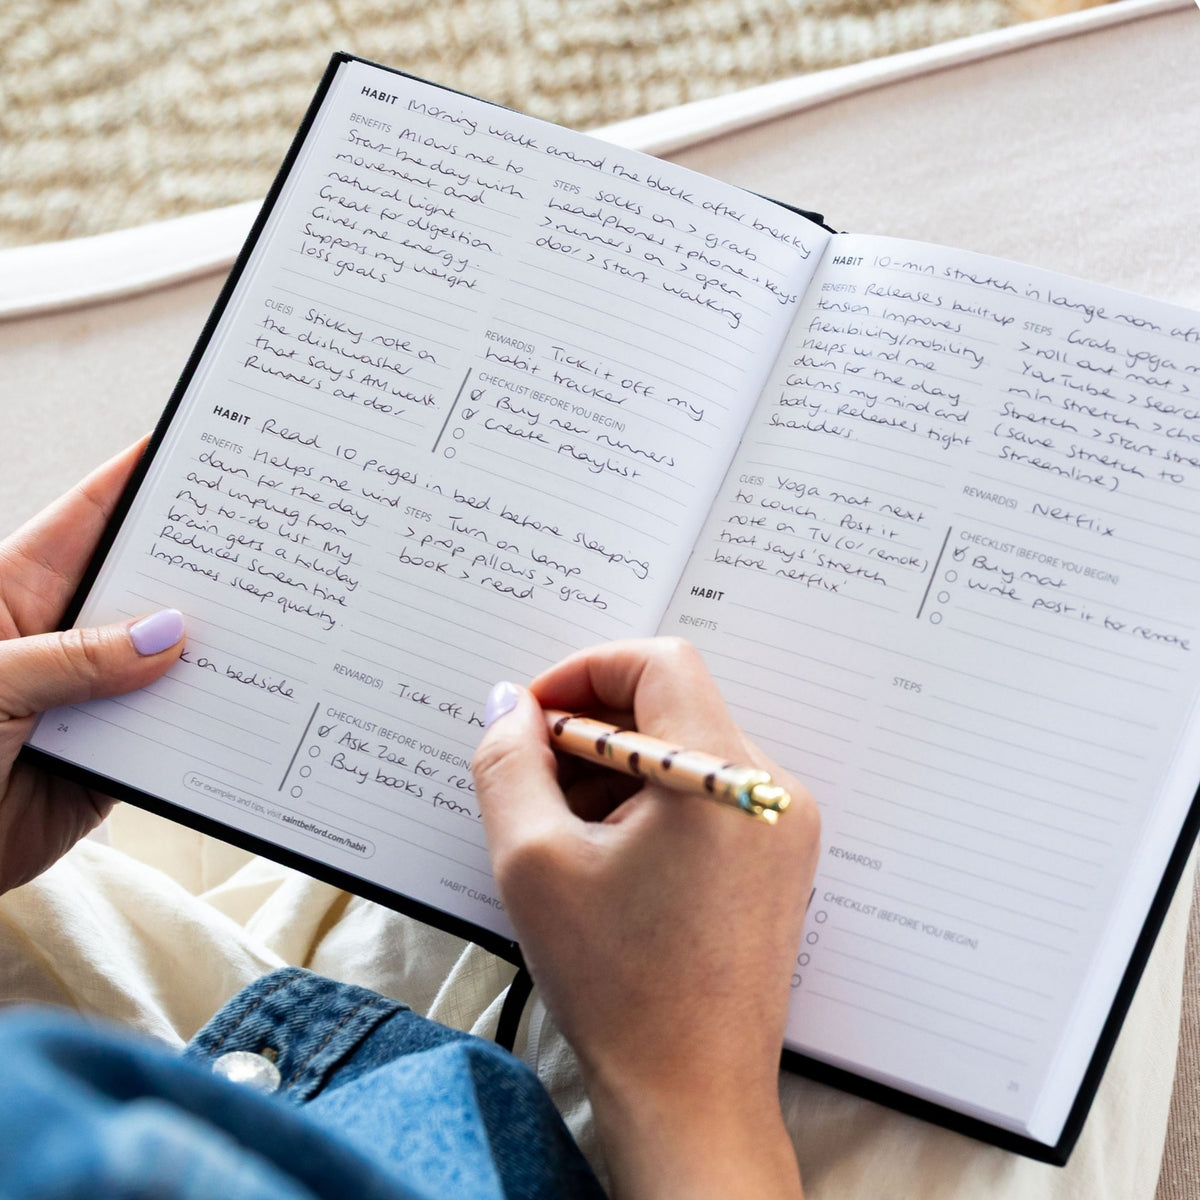 HABIT Morning walk around the block after brekky
BENEFITS Allows me to
start the day with
movement and
natural light
Great for digestion
Gives me energy
Supports my weight
loss goals
STEPS socks on > grab
headphones + phone + keys
> runners on > open
door > start walking
CUE(S) Sticky note on
the dishwasher
that says AM walk.
Runners at door
REWARD(S) Tick it off my
habit tracker
CHECKLIST (BEFORE YOU BEGIN)
Buy new runners
Create playlist
HABIT Read 10 pages in bed before sleeping
BENEFITS Helps me wind
down for the day
and unplug from
my to-do list. My
brain gets a holiday
Reduces screen time
Improves sleep quality.
STEPS Turn on lamp
> prop pillows > grab
book > read
on bedside
REWARD(S) Tick off
CHECKLIST (BEFORE YOU BEGIN)
Ask Zoe for
Buy books from
24
For examples and tips, visit saintbelford.com/habit
HABIT
HABIT 10-min stretch in lounge room
BENEFITS Releases built up
tension Improves
flexibility/mobility
Helps wind me
down for the day
Calms my mind and
body. Releases tight
shoulders.
STEPS Grab yoga
> roll out mat >
YouTube >
min stretch >
stretch > start
(save stretch to
streamline)
CUE(S) Yoga mat next
to couch. Post it
note on TV (or remote)
that says 'stretch
before netflix'
REWARD(S) Netflix
CHECKLIST (BEFORE YOU BEGIN)
Buy mat
Write post it for remote
HABIT
BENEFITS
STEPS
REWARD(S)
CHECKLIST (BEFORE YOU BEGIN)
25